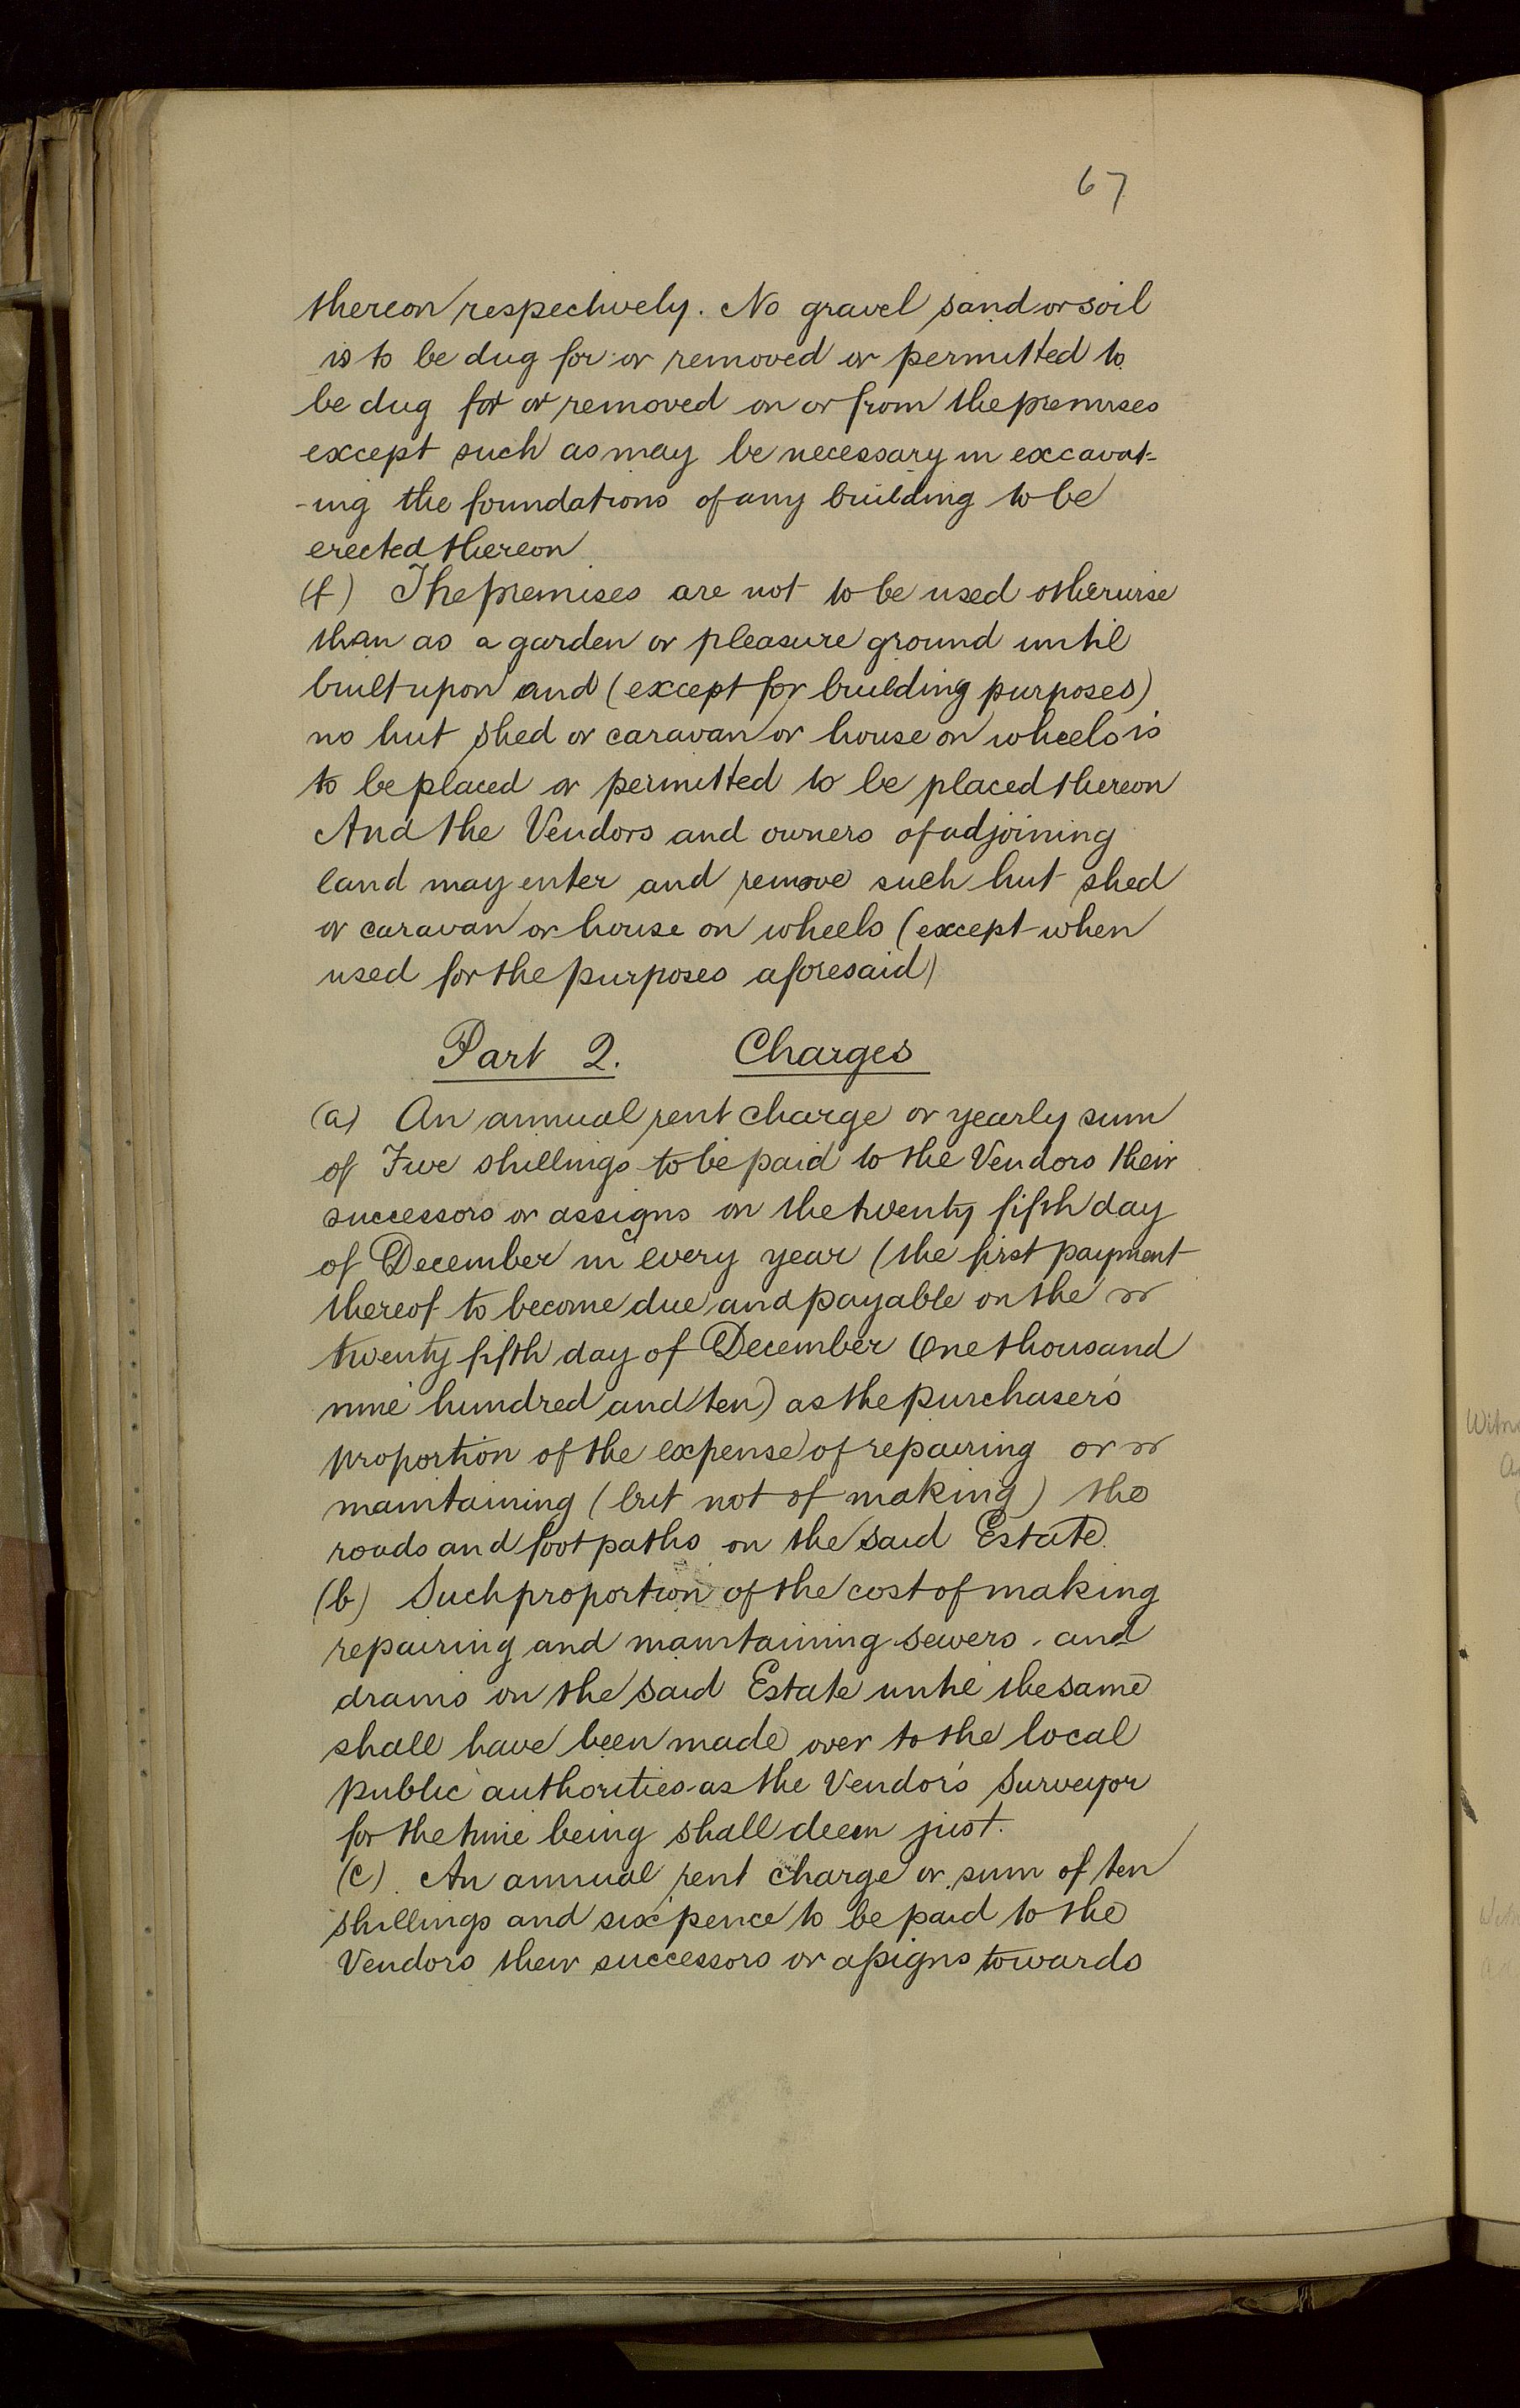 67
thereon respectively. No gravel sand or soil
is to be dug for or removed or permitted to
be dug for or removed on or from the premises
except such as may be necessary in excavat-
-ing the foundations of any building to be
erected thereon
(f) The premises are not to be used otherwise
than as a garden or pleasure ground until
built upon and (except for building purposes)
no hut shed or caravan or house on wheels is
to be placed or permitted to be placed thereon
And the Vendors and owners of adjoining
land may enter and remove such hut shed
or caravan or house on wheels (except when
used for the purposes aforesaid)
Part 2. Charges
(a) An annual rent charge or yearly sum
of Five shillings to be paid to the Vendors their
successors or assigns on the twenty fifth day
of December in every year (the first payment
thereof to become due and payable on the
twenty fifth day of December One thousand
nine hundred and ten) as the purchaser's
proportion of the expense of repairing or
maintaining (but not of making) the
roads and footpaths on the said Estate.
(b) Such proportion of the cost of making
repairing and maintaining sewers and
drains on the said Estate until the same
shall have been made over to the local
public authorities as the Vendor's Surveyor
for the time being shall deem just.
(c) An annual rent charge or sum of ten
shillings and sixpence to be paid to the
Vendors their successors or assigns towards